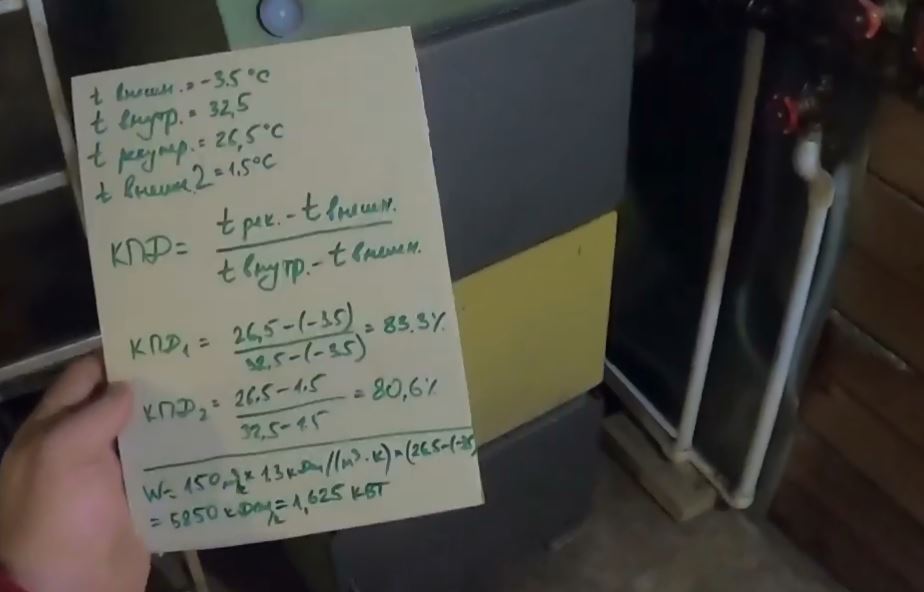 t внешн. = -3.5°C
t внутр. = 32,5
t рекупер. = 26,5°C
t внешн.2 = 1,5°C
КПД = t рек. - t внешн. / t внутр. - t внешн.
КПД₁ = 26,5-(-3.5) / 32,5-(-3.5) = 83.3%
КПД₂ = 26.5-1.5 / 32,5-1.5 = 80,6%
W = 150 м³/ч × 1.3 кДж/(м³·К) × (26.5-(-3.5)
= 5850 кДж/ч = 1,625 кВт